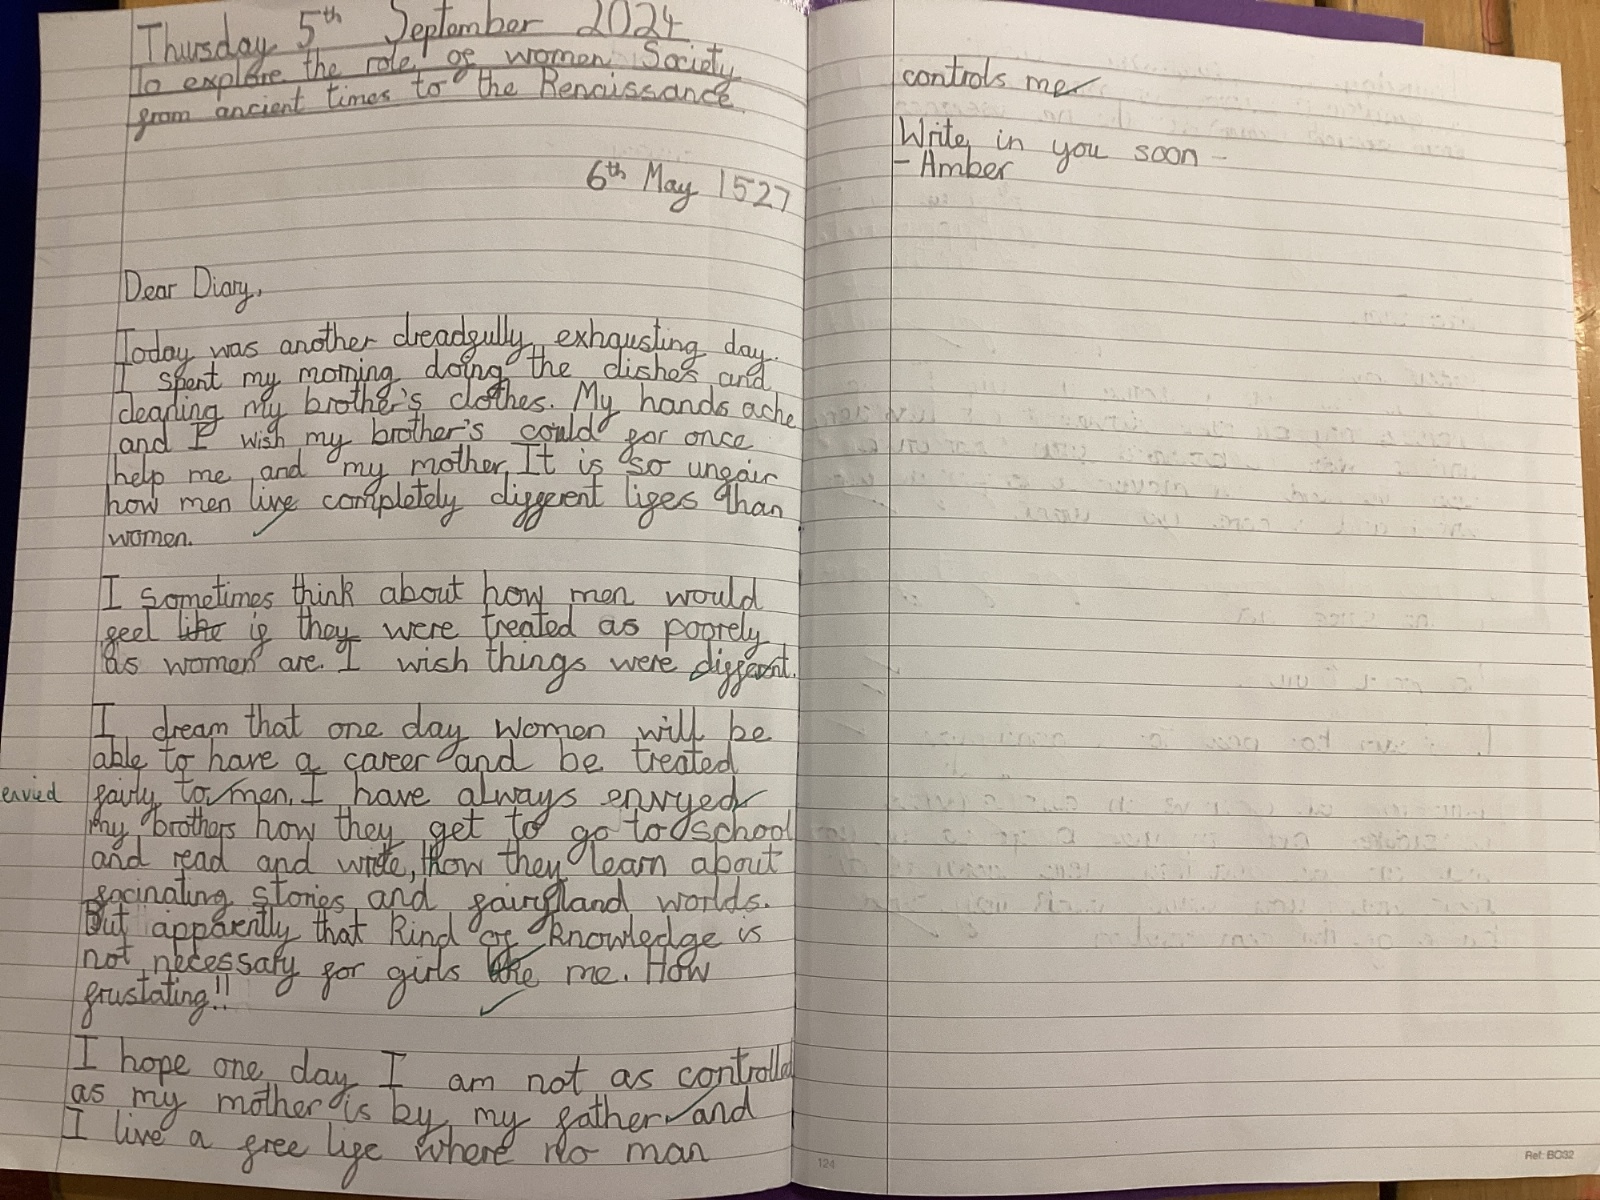 Thursday 5th September 2024
To explore the role of women Society
from ancient times to the Renaissance
6th May 1527
Dear Diary,
Today was another dreadfully exhausting day.
I spent my morning doing the dishes and
cleaning my brother's clothes. My hands ache
and I wish my brother's could for once
help me and my mother. It is so unfair
how men live completely different lifes than
women.
I sometimes think about how men would
feel like if they were treated as poorely
as women are. I wish things were different.
I dream that one day women will be
able to have a career and be treated
envied
fairly to men. I have always envyed
my brothers how they get to go to school
and read and write, how they learn about
facinating stories and fairyland worlds.
But apparently that kind of knowledge is
not necessary for girls like me. How
frustating!!
I hope one day I am not as controlled
as my mother is by my father and
I live a free life where no man
124
controls me
Write in you soon -
- Amber
Ref: BO32